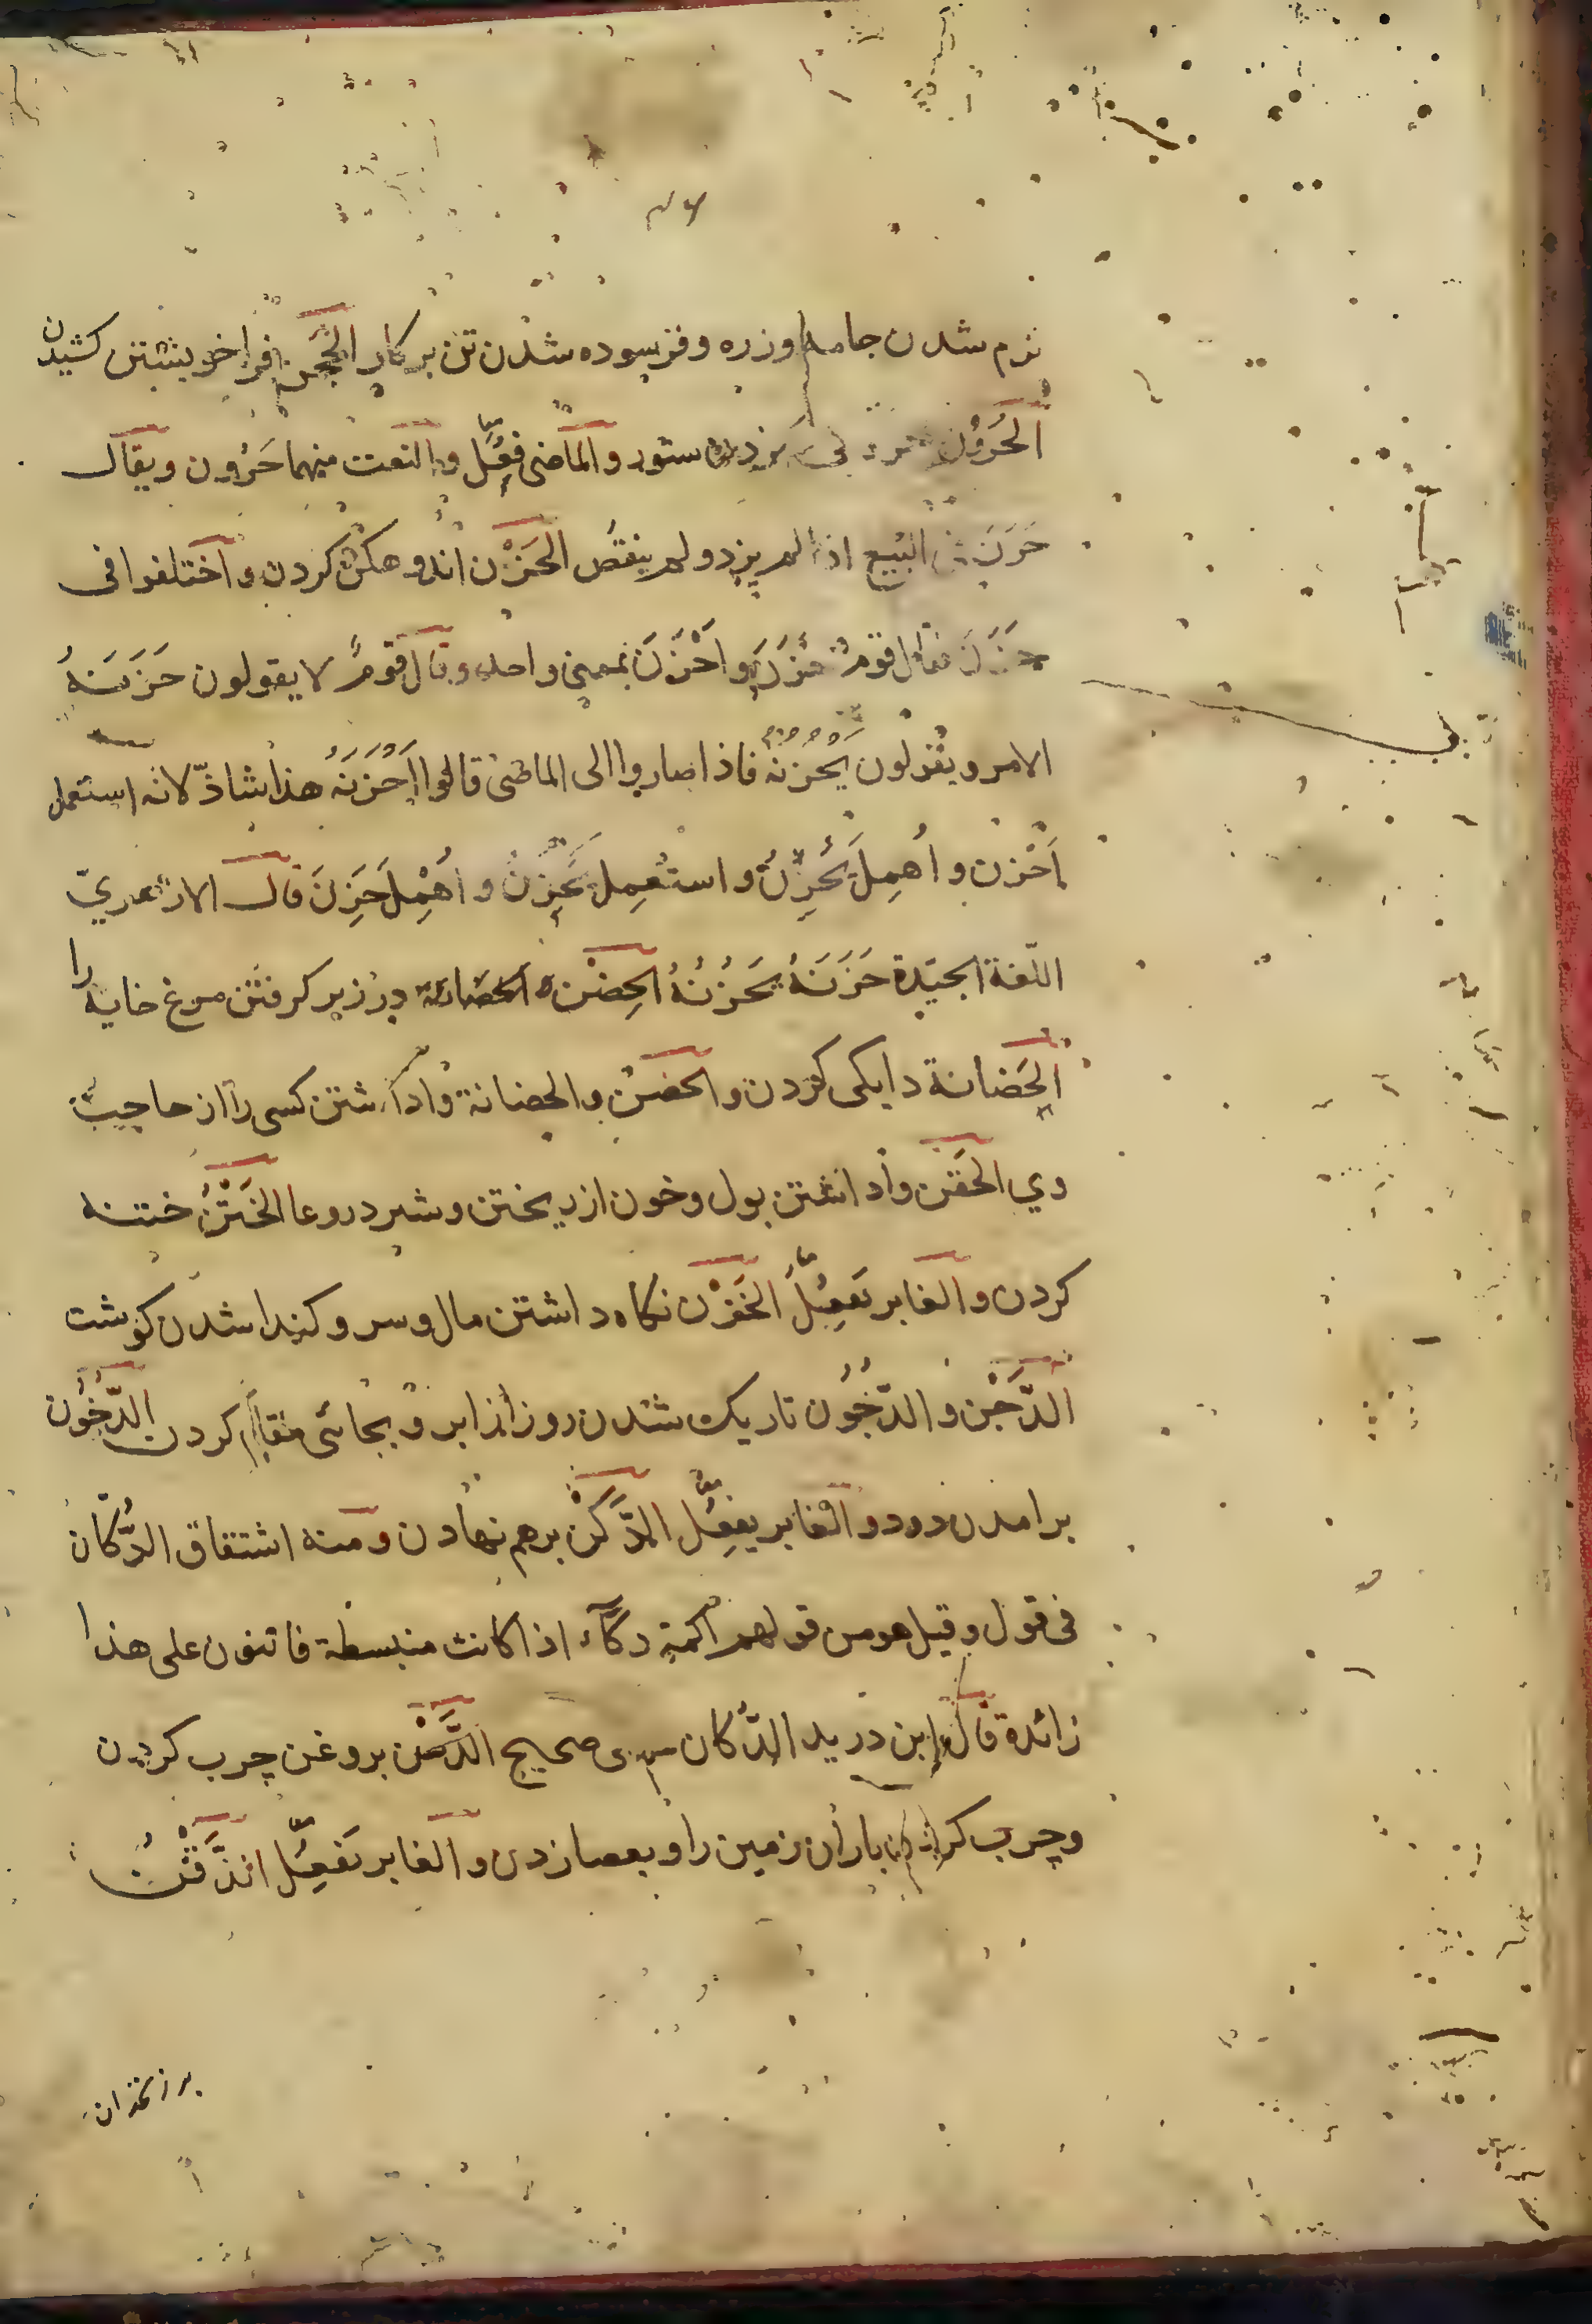 نرم شدن جامه و زره و فرسوده شدن تن بر کار الحجن فرا خویشتن کشیدن
الحرون ستور والماضی فعل والنعت منهما حرون ویقال
حرن فی البیع اذا لم یزد ولم ینقص الحزن اندوهکن کردن واختلفوا فی
حزن فقال قوم حزن واحزن بمعنی واحد وقال قوم لا یقولون حزنه
الامر ویقولون یحزنه فاذا صاروا الی الماضی قالوا احزنه هذا شاذ لانه استعمل
احزن واهمل یحزن واستعمل یحزن واهمل حزن قال الازهری
اللغة الجیدة حزنه یحزنه الحضن الحضانة در زیر کرفتن مرغ خایه را
الحضانة دایکی کردن والحضن والحضانة واداشتن کسی را از حاجت
وی الحقن واداشتن بول وخون از ریختن وشیر در وعا الختن ختنه
کردن والغابر یفعل الخزن نکاه داشتن مال وسر وکندا شدن کوشت
الدجن والدجون تاریک شدن روز از ابر و بجائی مقام کردن الدخون
برامدن دود والغابر یفعل الدکن برهم نهادن ومنه اشتقاق الدکان
فی قول وقیل هو من قولهم اکمة دکاء اذا کانت منبسطة فالنون علی هذا
زائدة قال ابن درید الدکان صحیح الدهن بروغن چرب کردن
وچرب کردن باران زمین را وبعصا زدن والغابر یفعل الذقن
بر زنخدان